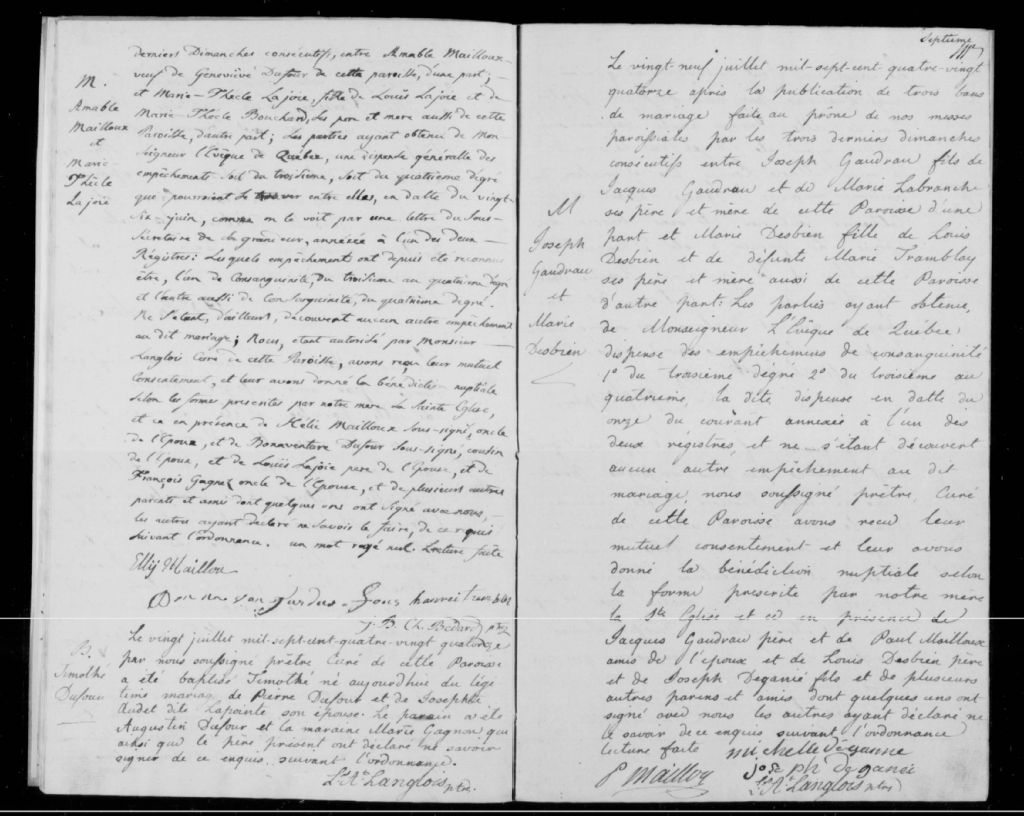 derniers Dimanches consécutifs, entre Amable Mailloux
veuf de Geneviève Dufour de cette paroisse, d'une part;
et Marie-Thecle Lajoie, fille de Louïs Lajoie et de
Marie Thècle Bouchard, ses pere et mere aussi de cette
Paroisse, d'autre part; Les parties ayant obtenu de Mon
Seigneur l'Evêque de Québec, une dispense générale des
empêchements soit du troisième, soit du quatrième dégré
que pourroient se trouver entre elles, en datte du vingt-
Six juin, comme on le voit par une lettre du Sous-
Secrétaire de sa grandeur, annexée à l'un des deux
Régistres: Lesquels empêchements ont depuis été reconnus
être, l'un de Consanguinité, du troisième au quatrième dégré
et l'autre aussi de Consanguinité, du quatrième dégré.
Ne s'étant, d'ailleurs, découvert aucun autre empêchement
au dit mariage; Nous, étant autorisé par Monsieur
Langlois Curé de cette Paroisse, avons reçu leur mutuel
Consentement, et leur avons donné la bénédiction nuptiale
selon les formes prescrites par notre mere la Sainte Eglise,
et ce en présence de Mailloux sous-signé, oncle
de l'Epoux, et de Bonaventure Dufour sous-signé, cousin
de l'Epoux, et de Louïs Lajoie pere de l'Epouse, et de
François Gagné oncle de l'Epouse, et de plusieurs autres
parents et amis dont quelques uns ont signé avec nous,
les autres ayant declaré ne savoir le faire, de ce requis
suivant l'ordonnance. un mot rayé nul. Lecture faite
M.
Amable
Mailloux
et
Marie-
Thècle
Lajoie
Ellij Maillou
J. B. Ch. Bédard ptre
B.
Timothé
Dufour
Le vingt juillet mil-sept-cent-quatre-vingt quatorze
par nous soussigné prêtre Curé de cette Paroisse
a été baptisé Timothé né aujourdhui du légi
time mariag. de Pierre Dufour et de Josephte
Audet dite Lapointe son épouse. Le parain a été
Augustin Dufour et la maraine Marie Gagnon qui
ainsi que le père present ont déclaré ne savoir
signer de ce enquis suivant l'ordonnance.
Ls. Ate. Langlois ptre.
Septieme
Le vingt-neuf juillet mil-sept-cent quatre-vingt
quatorze après la publication de trois bans
de mariage faite au prône de nos messes
paroissiales par les trois derniers dimanches
consécutifs entre Joseph Gaudrau fils de
Jacques Gaudrau et de Marie Labranche
ses père et mère de cette Paroisse d'une
part et Marie Desbien fille de Louis
Desbien et de défunte Marie Tramblay
ses père et mère aussi de cette Paroisse
d'autre part: Les parties ayant obtenue,
de Monseigneur L'Evêque de Québec
dispense des empêchemens de consanguinité
1º du troisième dégré 2º du troisième au
quatrieme, la dite dispense en datte du
onze du courant annexée à l'un des
deux régistres, et ne s'étant découvert
aucun autre empêchement au dit
mariage, nous soussigné prêtre, Curé
de cette Paroisse avons recu leur
mutuel consentement et leur avons
donné la bénédiction nuptiale selon
la forme prescrite par notre mère
la Ste Eglise et ce en presence de
Jacques Gaudrau père et de Paul Mailloux
amis de l'époux et de Louis Desbien père
et de Joseph Degané fils et de plusieurs
autres parens et amis dont quelques uns ont
signé avec nous les autres ayant déclaré ne
le savoir de ce enquis suivant l'ordonnance
lecture faite
M
Joseph
Gaudrau
et
Marie
Desbien
michelle déganne
P Maillou
joseph deganée
Ls. Ate. Langlois ptre